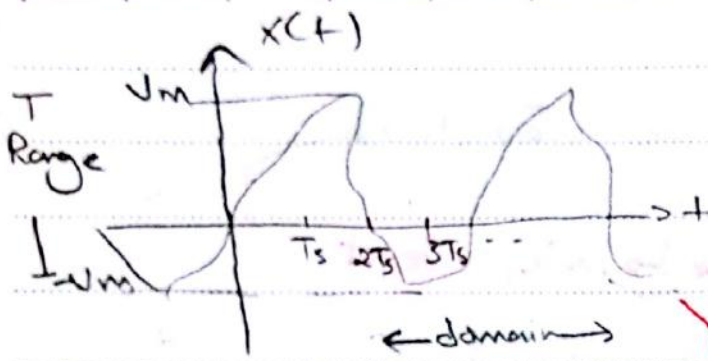 x(t)
Vm
Range
Ts 2Ts 3Ts .. t
-Vm
domain